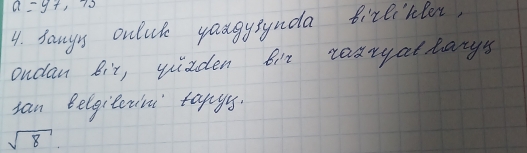 a = 97,
4. Sanyň onluk ýazgysynda birlikler,
ondan bir, ýüzden bir razrýadlaryň
san belgilerini tapyň.
√8.